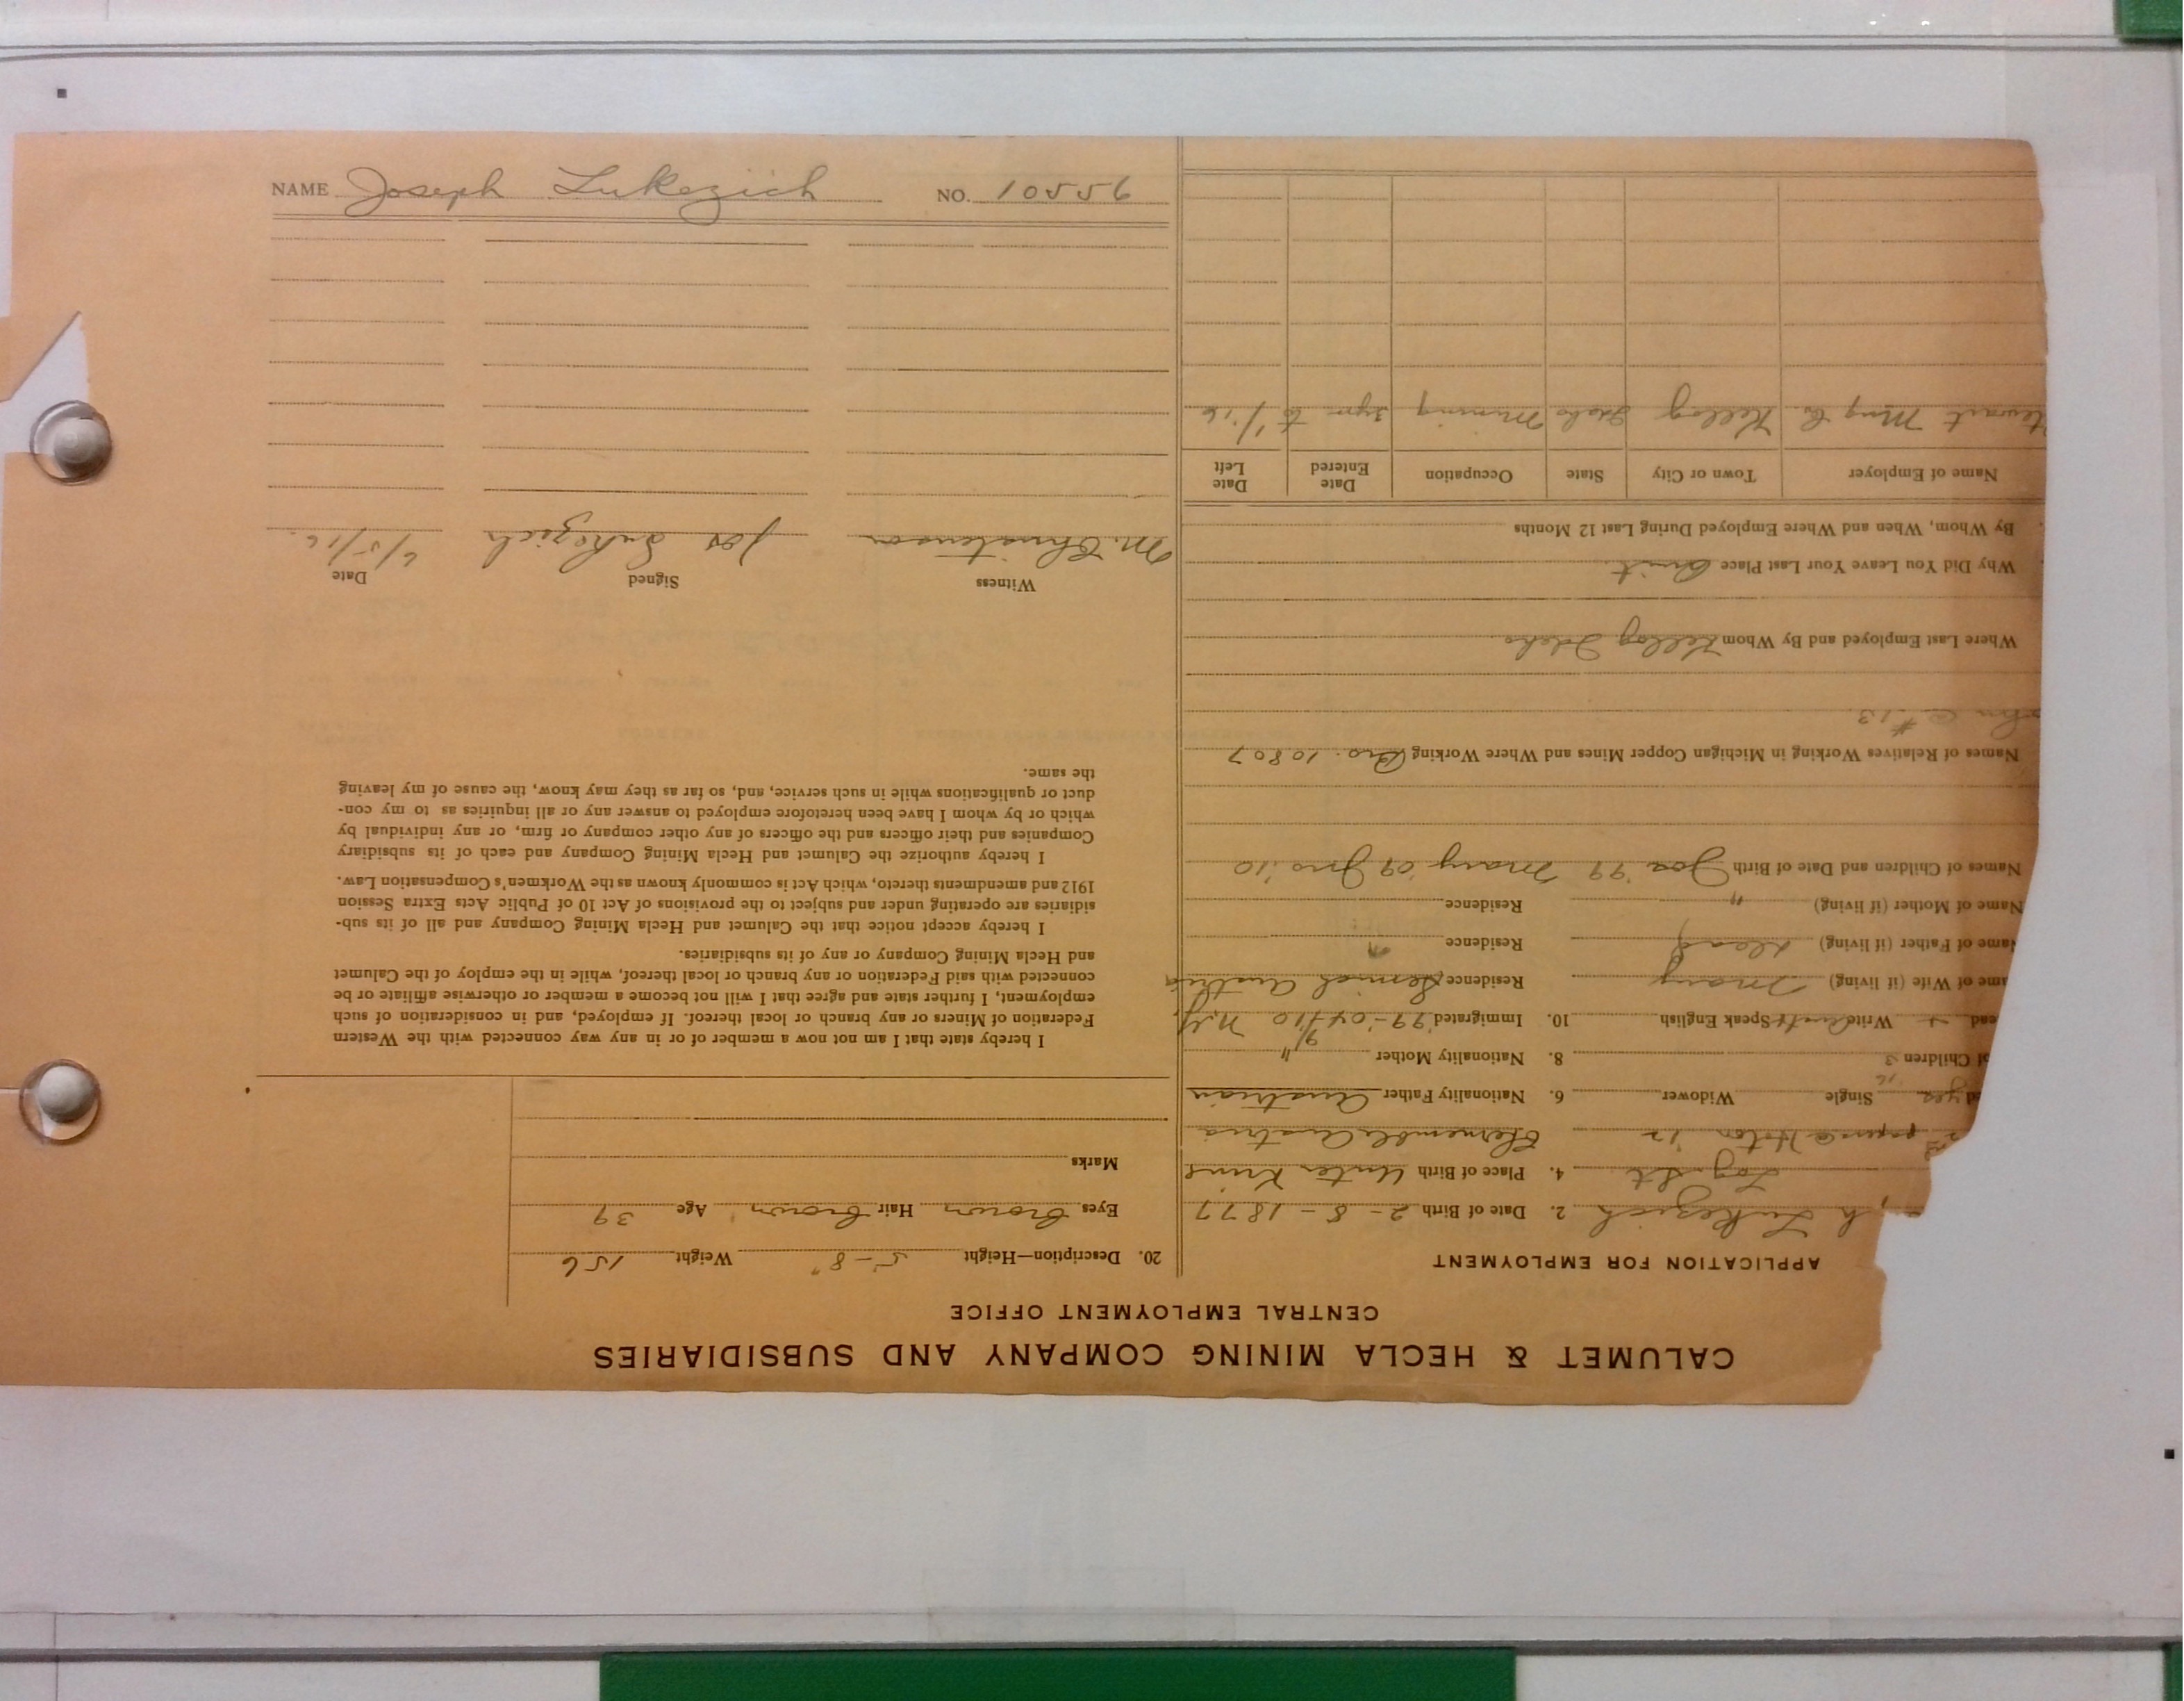 CALUMET & HECLA MINING COMPANY AND SUBSIDIARIES
CENTRAL EMPLOYMENT OFFICE
APPLICATION FOR EMPLOYMENT
h Lukezich 2. Date of Birth 2-8-1877
Log. St 4. Place of Birth Unter Krine
papers @ Hoton '12 Austria
ed yes Single Widower 6. Nationality Father Austrian
of Children 3 8. Nationality Mother "
ead Write Speak English 10. Immigrated '99-'04 + 9/10 N.Y.
ame of Wife (if living) Mary Residence Austria
Name of Father (if living) dead Residence
Name of Mother (if living) " Residence
Names of Children and Date of Birth Jos '99 Mary '09 Jno '10
Names of Relatives Working in Michigan Copper Mines and Where Working Bro. 10807
#13
Where Last Employed and By Whom Kellog Idaho
Why Did You Leave Your Last Place Quit
By Whom, When and Where Employed During Last 12 Months
Name of Employer Town or City State Occupation Date Entered Date Left
tewart Mng Co. Kellog Idaho Mining 3 yrs to 1/'16
20. Description—Height 5-8" Weight 156
Eyes Brown Hair Brown Age 39
Marks
I hereby state that I am not now a member of or in any way connected with the Western
Federation of Miners or any branch or local thereof. If employed, and in consideration of such
employment, I further state and agree that I will not become a member or otherwise affiliate or be
connected with said Federation or any branch or local thereof, while in the employ of the Calumet
and Hecla Mining Company or any of its subsidiaries.
I hereby accept notice that the Calumet and Hecla Mining Company and all of its sub-
sidiaries are operating under and subject to the provisions of Act 10 of Public Acts Extra Session
1912 and amendments thereto, which Act is commonly known as the Workmen's Compensation Law.
I hereby authorize the Calumet and Hecla Mining Company and each of its subsidiary
Companies and their officers and the officers of any other company or firm, or any individual by
which or by whom I have been heretofore employed to answer any or all inquiries as to my con-
duct or qualifications while in such service, and, so far as they may know, the cause of my leaving
the same.
Witness Signed Date
M. Christenson Jos Lukezich 6/5/16.
NAME Joseph Lukezich NO. 10556